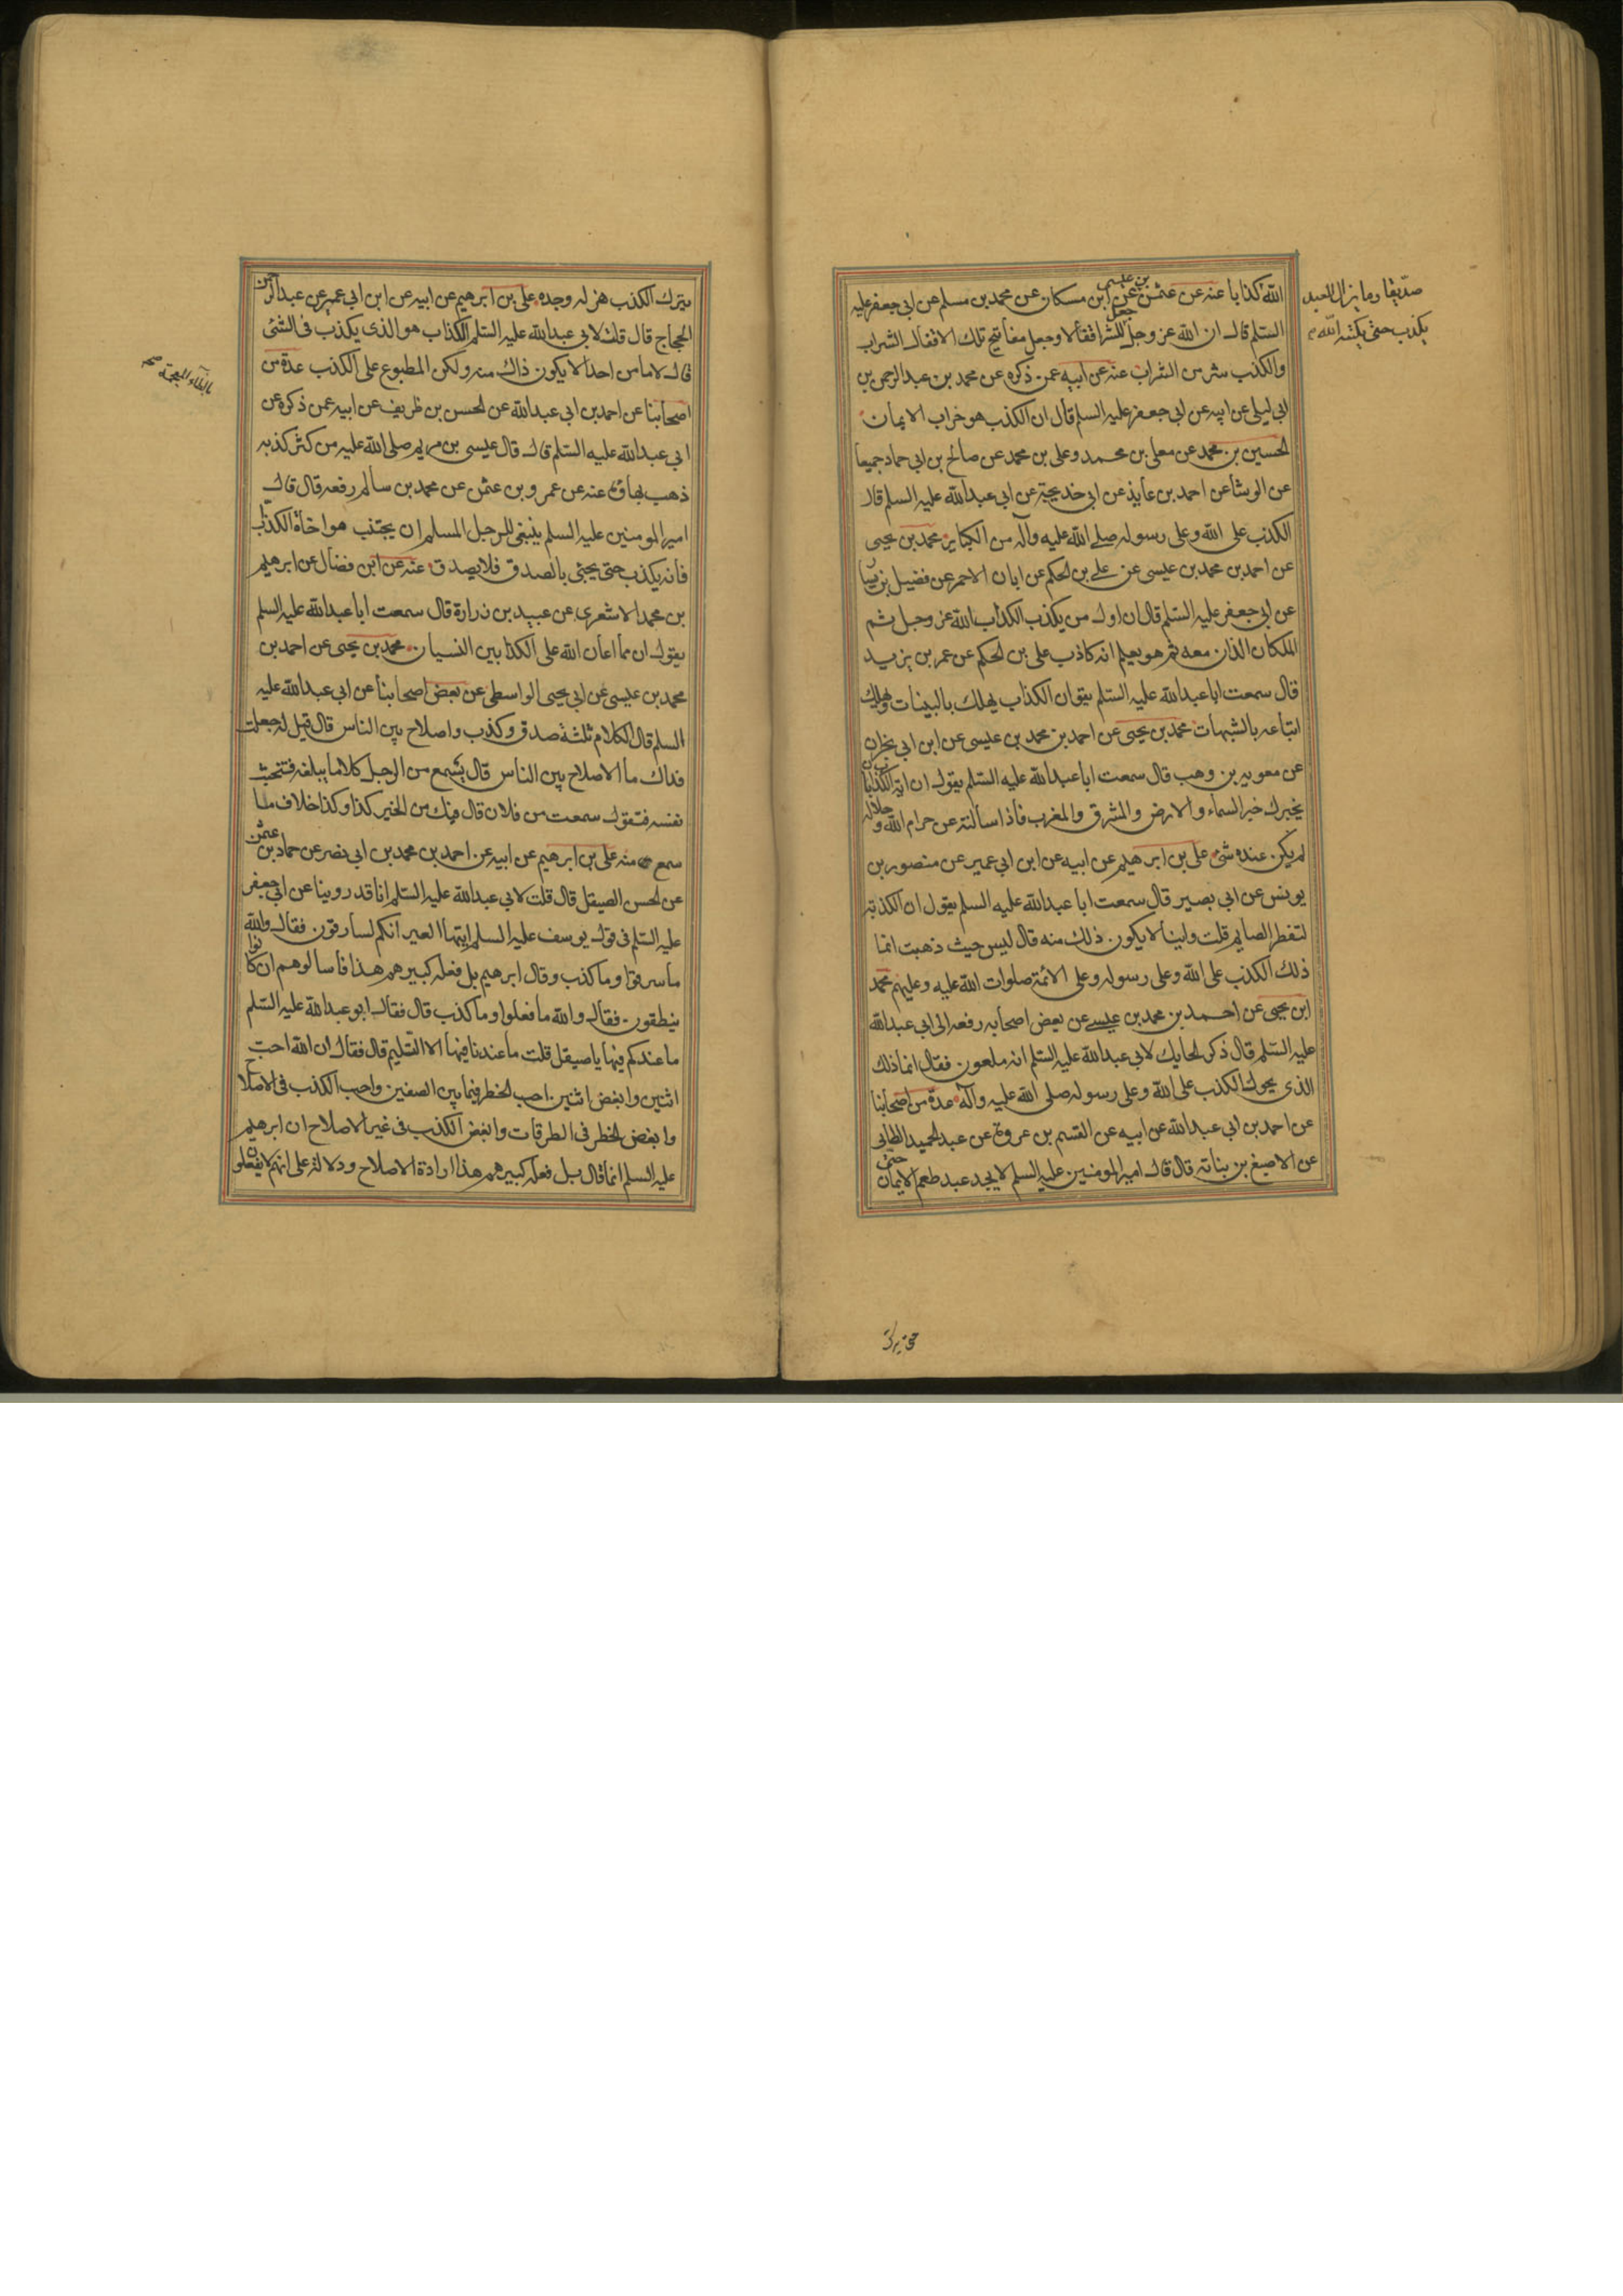 صدّيقا وما يزال العبد
يكذب حتى يكتبه الله م
الله كذابا عنه عن عثمن بن عيسى عن ابن مسكان عن محمد بن مسلم عن ابي جعفر عليه
السّلم قال ان الله عز وجل جعل للشر اقفالا وجعل مفاتيح تلك الاقفال الشراب
والكذب شر من الشراب عنه عن ابيه عمن ذكره عن محمد بن عبد الرحمن بن
ابي ليلى عن ابيه عن ابي جعفر عليه السلم قال ان الكذب هو خراب الايمان
الحسين بن محمد عن معلى بن محمد وعلى بن محمد عن صالح بن ابي حماد جميعا
عن الوشا عن احمد بن عايذ عن ابي خديجة عن ابي عبد الله عليه السلم قال
الكذب على الله وعلى رسوله صلى الله عليه وآله من الكباير محمد بن يحيى
عن احمد بن محمد بن عيسى عن على بن الحكم عن ابان الاحمر عن فضيل بن يسا
عن ابي جعفر عليه السّلم قال ان اول من يكذب الكذاب الله عز وجل ثم
الملكان الذان معه ثم هو يعلم انه كاذب على بن الحكم عن عمر بن يزيد
قال سمعت ابا عبد الله عليه السّلم يقو ان الكذاب يهلك بالبينات ويهلك
اتباعه بالشبهات محمد بن يحيى عن احمد بن محمد بن عيسى عن ابن ابي نجران
عن معويه بن وهب قال سمعت ابا عبد الله عليه السّلم يقول ان اية الكذاب بان
يخبرك خبر السماء والارض والمشرق والمغرب فاذا سألته عن حرام الله وحلاله
لم يكن عنده شئ على بن ابرهيم عن ابيه عن ابن ابي عمير عن منصور بن
يونس عن ابي بصير قال سمعت ابا عبد الله عليه السلم يقول ان الكذبة
لتفطر الصايم قلت واينا لا يكون ذلك منه قال ليس حيث ذهبت انما
ذلك الكذب على الله وعلى رسوله وعلى الائمة صلوات الله عليه وعليهم محمد
ابن يحيى عن احمد بن محمد بن عيسى عن بعض اصحابه رفعه الى ابي عبد الله
عليه السّلم قال ذكر الحايك لابي عبد الله عليه السّلم انه ملعون فقال انما ذلك
الذي يحوك الكذب على الله وعلى رسوله صلى الله عليه وآله عدة من اصحابنا
عن احمد بن ابي عبد الله عن ابيه عن القسم بن عروة عن عبد الحميد الطايى
عن الاصبغ بن نباته قال قال امير المومنين عليه السلم لا يجد عبد طعم الايمان حتى
حتى يترك
يترك الكذب هزله وجده على بن ابرهيم عن ابيه عن ابن ابي عمير عن عبد الرحمن
الحجاج قال قلت لابي عبد الله عليه السّلم الكذاب هو الذي يكذب في الشئ
قال لا ما من احد الا يكون ذاك منه ولكن المطبوع على الكذب عدة من
اصحابنا عن احمد بن ابي عبد الله عن الحسن بن ظريف عن ابيه عمن ذكره عن
بالظاء المعجمة صح
ابي عبد الله عليه السّلم قال قال عيسى بن مريم صلى الله عليه من كثر كذبه
ذهب بهاؤه عنه عن عمرو بن عثمن عن محمد بن سالم رفعه قال قال
امير المومنين عليه السلم ينبغي للرجل المسلم ان يجتنب مواخاة الكذاب
فانه يكذب حتى يجئ بالصدق فلا يصدق عنه عن ابن فضال عن ابرهيم
بن محمد الاشعري عن عبيد بن زرارة قال سمعت ابا عبد الله عليه السلم
يقول ان مما اعان الله على الكذابين النسيان محمد بن يحيى عن احمد بن
محمد بن عيسى عن ابي يحيى الواسطى عن بعض اصحابنا عن ابي عبد الله عليه
السلم قال الكلام ثلثة صدق وكذب واصلاح بين الناس قال قيل له جعلت
فداك ما الاصلاح بين الناس قال تسمع من الرجل كلاما يبلغه فتخبث
نفسه فتقول سمعت من فلان قال فيك من الخير كذا وكذا خلاف ما
سمع منه على بن ابرهيم عن ابيه عن احمد بن محمد بن ابي نصر عن حماد بن عثمن
عن الحسن الصيقل قال قلت لابي عبد الله عليه السّلم انا قد روينا عن ابي جعفر
عليه السّلم في قول يوسف عليه السلم ايتها العير انكم لسارقون فقال والله
ما سرقوا وما كذب وقال ابرهيم بل فعله كبيرهم هذا فاسالوهم ان كانوا
ينطقون فقال والله ما فعلوا وما كذب قال فقال ابو عبد الله عليه السّلم
ما عندكم فيها يا صيقل قلت ما عندنا فيها الا التسليم قال فقال ان الله احب
اثنين وابغض اثنين احب الخطر فيما بين الصفين واحب الكذب في الاصلاح
وابغض الخطر في الطرقات وابغض الكذب في غير الاصلاح ان ابرهيم
عليه السلم انما قال بل فعله كبيرهم هذا ارادة الاصلاح ودلالة على انهم لا يفعلون